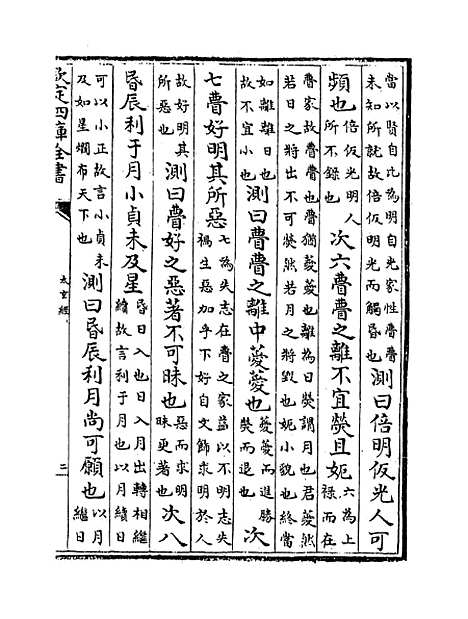 當以賢自比為明自光家性瞢瞢
未知所就故倍仮明光而觸昏也
測曰倍明仮光人可
頻也
倍仮光明人
所不錄也
次六瞢瞢之離不宜熒且妮
六為上
祿而在
瞢家故瞢瞢也瞢猶薆薆也離為日熒謂月也君薆然
若日之將出不可熒然若月之將毀也妮小貌也終當
如離離日也
故不宜小也
測曰瞢瞢之離中薆薆也
薆薆而進勝
熒而退也
次
七瞢好明其所惡
七為失志在瞢之家益以不明志失
禍生惡加乎下好自文飾求明於人
故好明其
所惡也
測曰瞢好之惡著不可昧也
惡而求明
昧更著也
次八
昏辰利于月小貞未及星
昏日入也日入月出轉相繼
續故言利于月也以月續日
可以小正故言小貞未
及如星爛布天下也
測曰昏辰利月尚可願也
以月
繼日
欽定四庫全書
太玄經
二